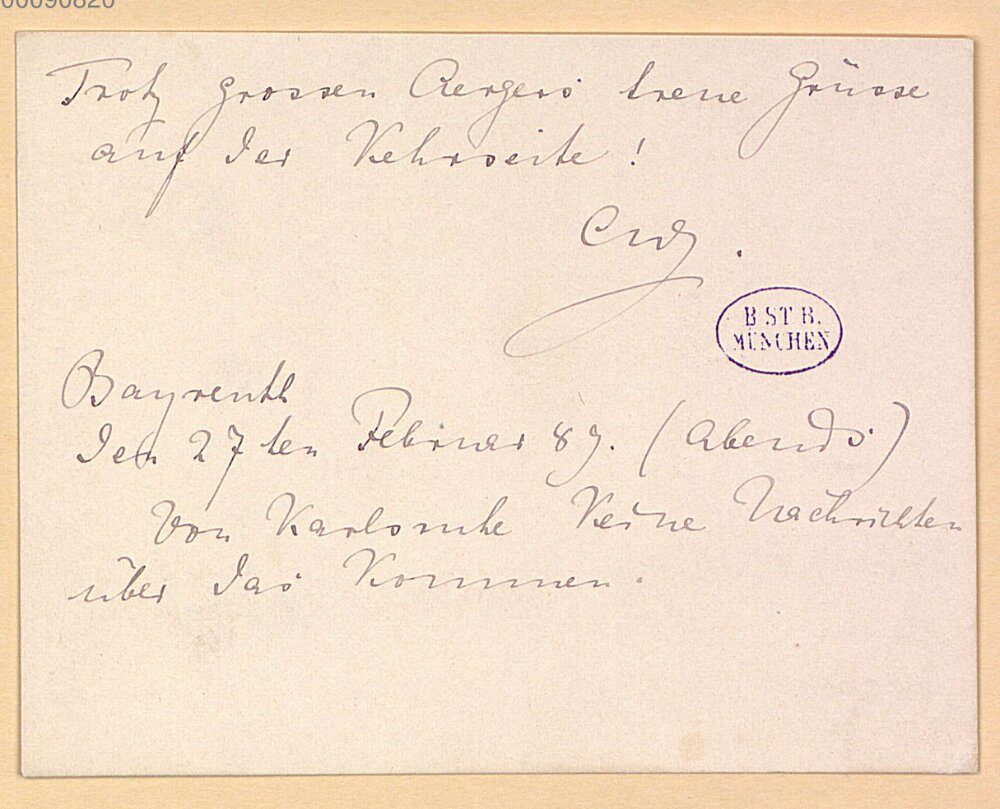 00090820
Trotz grossen Aergers treue Grüsse
auf der Kehrseite !
CW.
B ST B.
MÜNCHEN
Bayreuth
den 27ten Februar 89. (Abends)
Von Karlsruhe keine Nachrichten
über das Kommen.